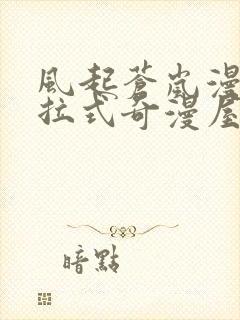 風起蒼嵐漫
拉式奇漫屋
暗點